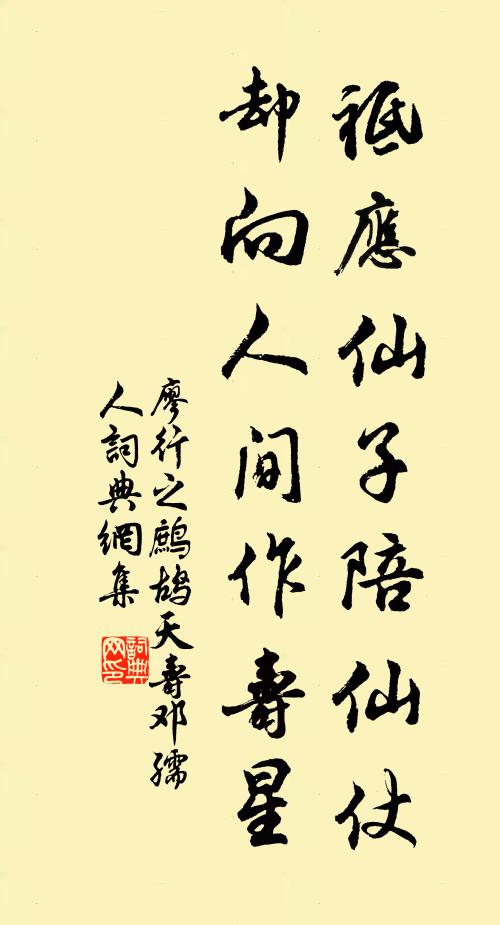 祗應仙子陪仙仗
却向人間作壽星
廖行之鷓鴣天壽邓孺
人詞典網集
詞典网印